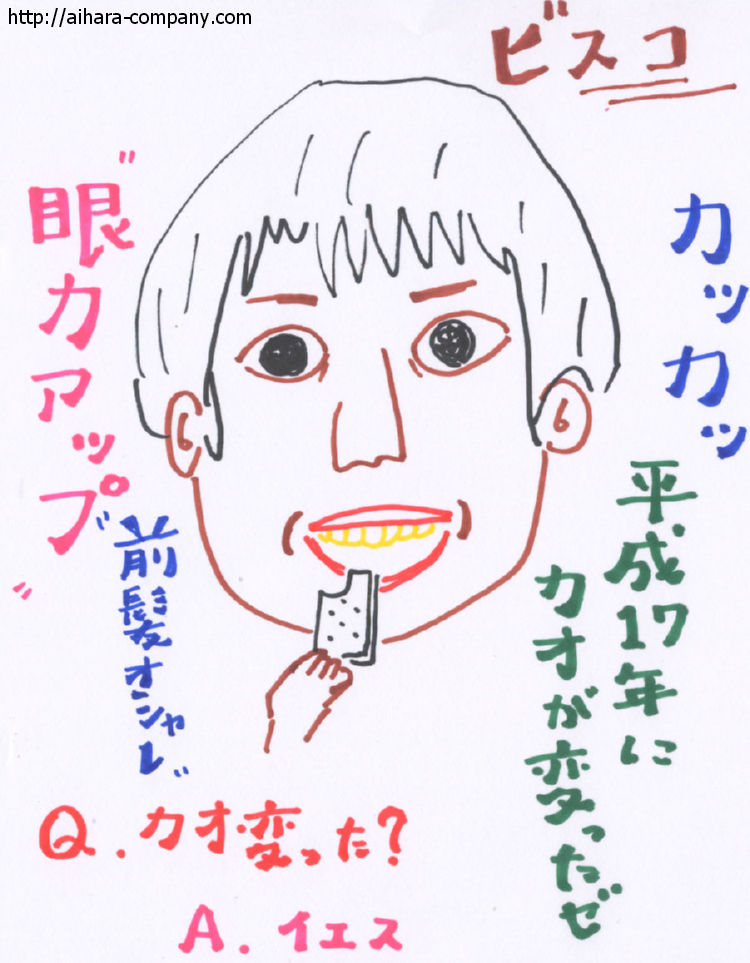 http://aihara-company.com
ビスコ
カッカッ
"眼力アップ"
平成17年に
カオが変ったゼ
前髪オシャレ
Q.カオ変った?
A.イエス